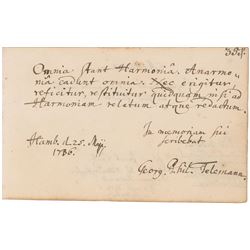 Omnia stant Harmoniâ. Anarmo-
niâ cadunt omnia. Nec erigitur,
reficitur, restituitur quidquam, nisi ad
Harmoniam relatum atque redactum.
In memoriam sui
scribebat
Hamb. d. 25. Maji
1736.
Georg. Phil. Telemann.